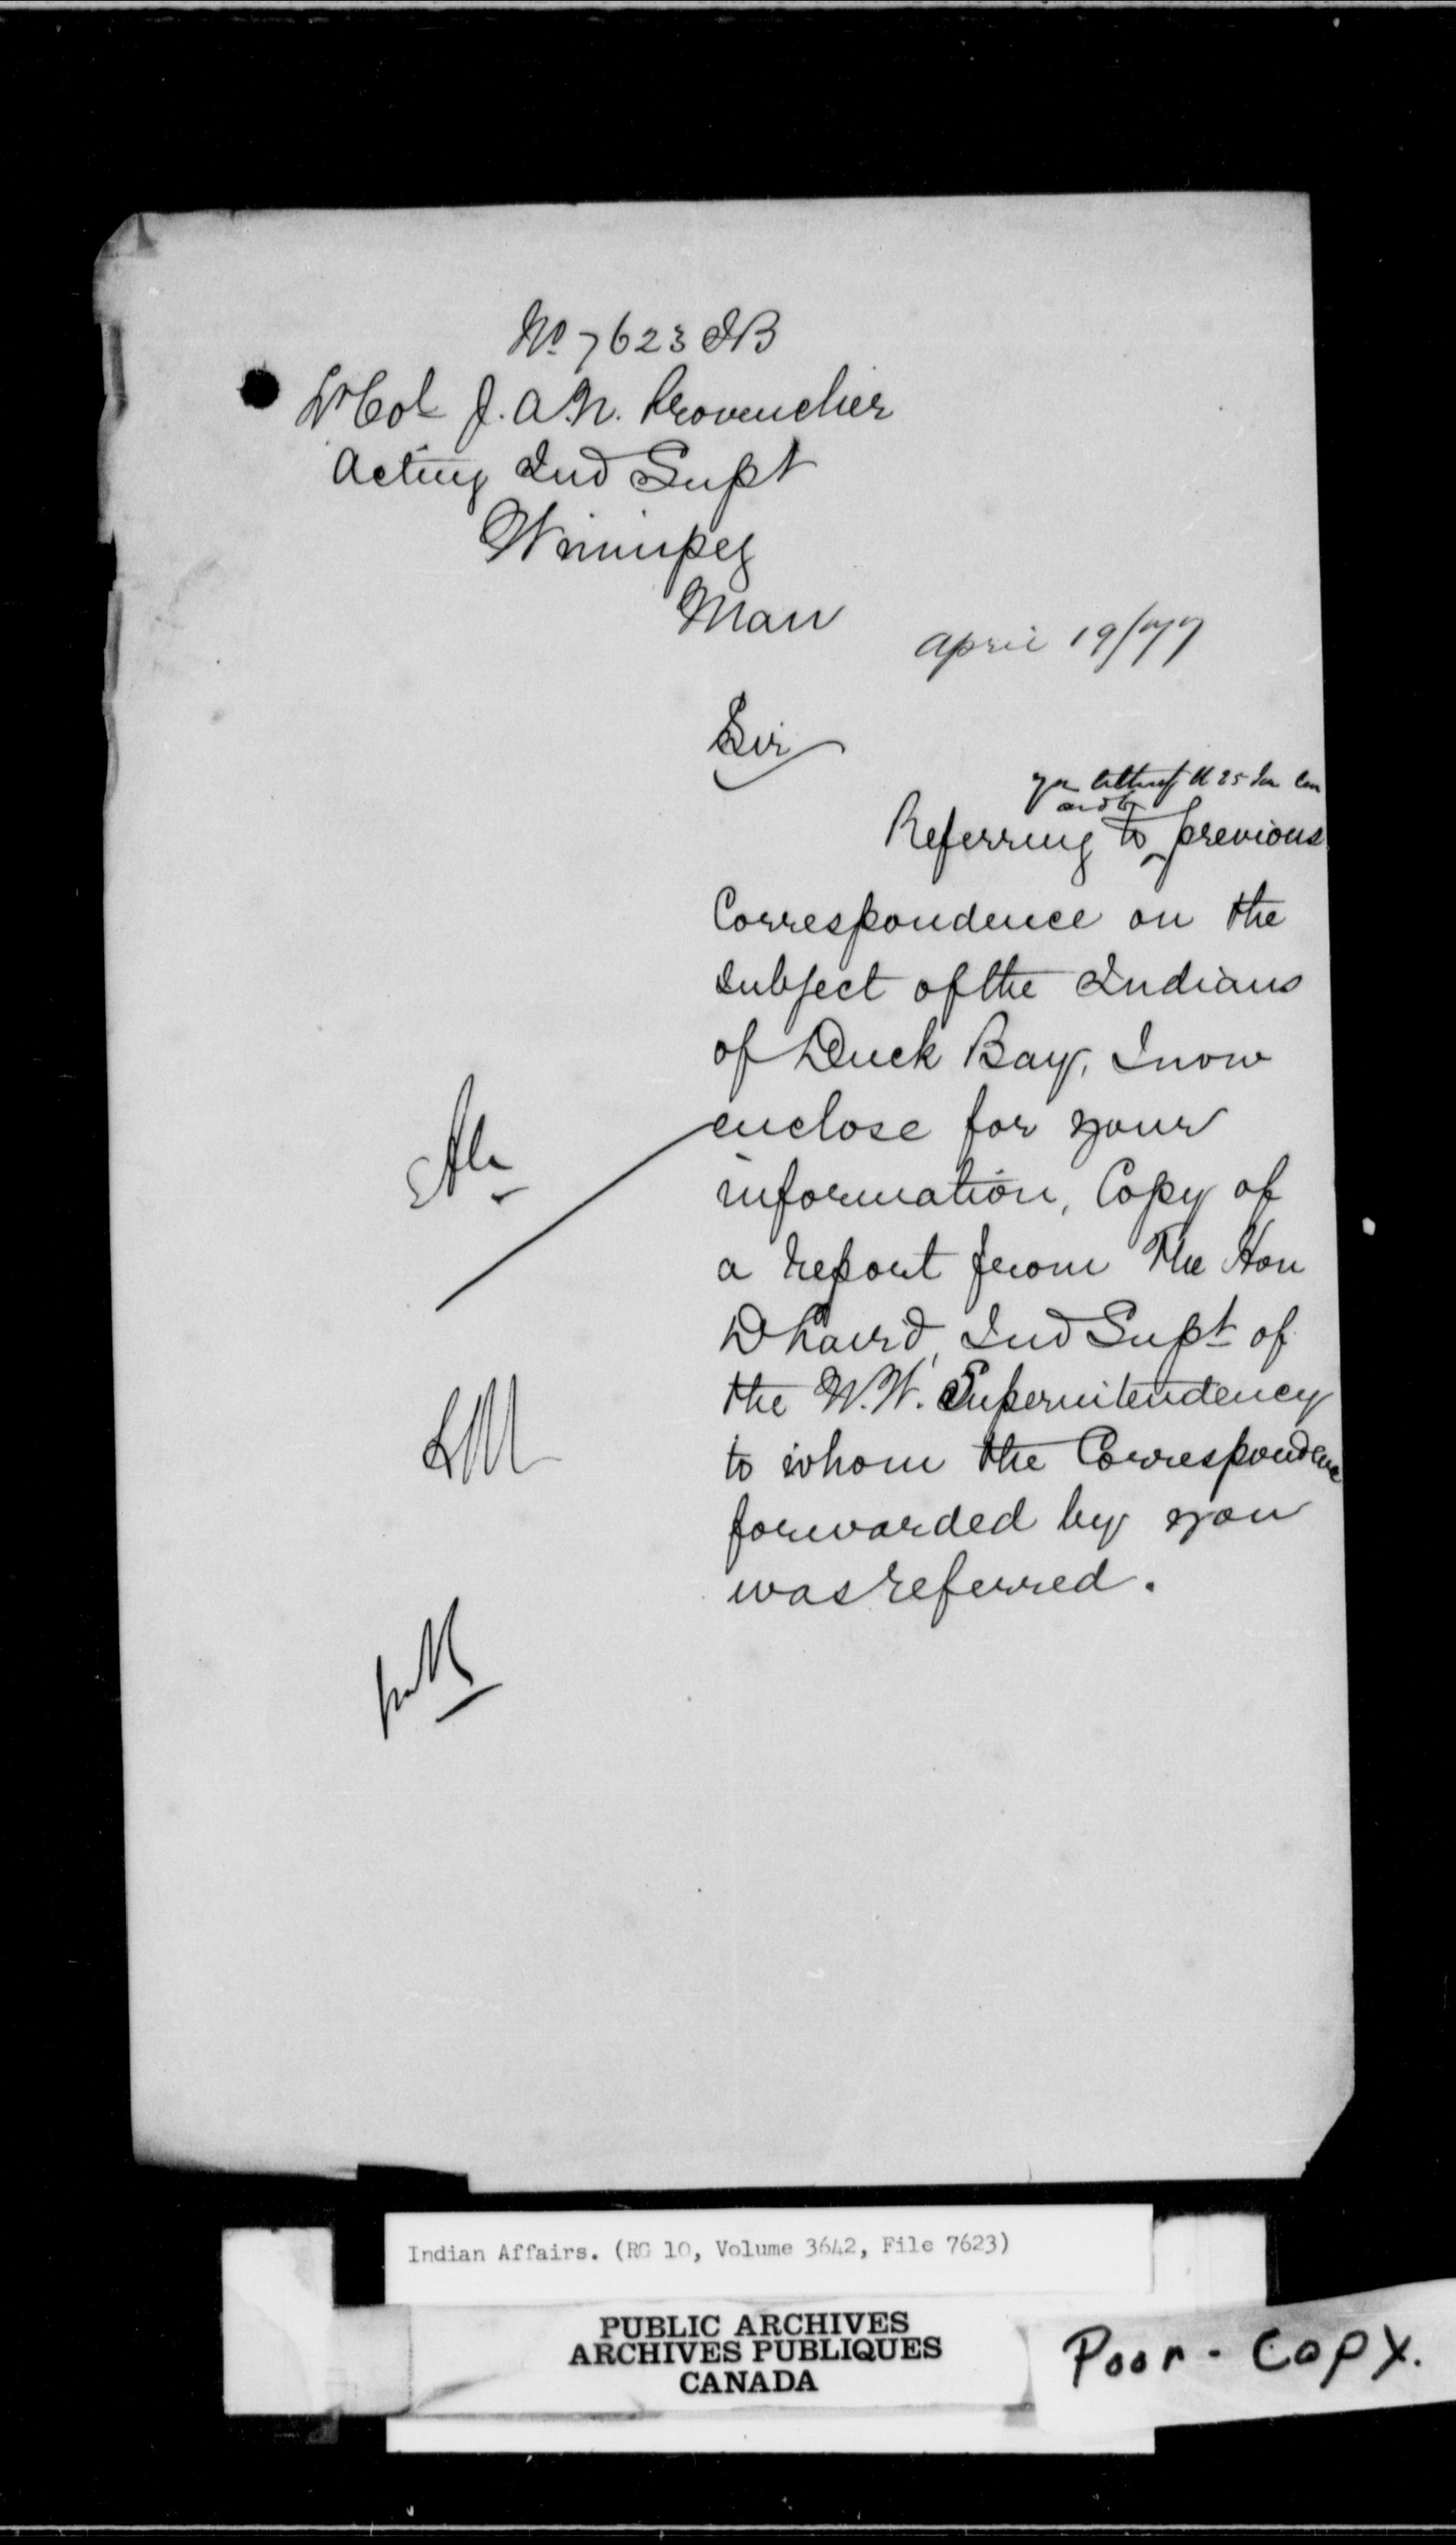 No 7623 IB
Lt Col J. A. N. Provencher
Acting Ind Supt
Winnipeg
Man
April 19/77
Sir
your letter of the 25 Jan
and to
Referring to previous
Correspondence on the
subject of the Indians
of Duck Bay, I now
enclose for your
information, Copy of
a report from The Hon
D Laird, Ind Supt of
the N.W. Superintendency
to whom the Correspondence
forwarded by you
was referred.
Indian Affairs. (RG 10, Volume 3642, File 7623)
PUBLIC ARCHIVES
ARCHIVES PUBLIQUES
CANADA
Poor - Copy.